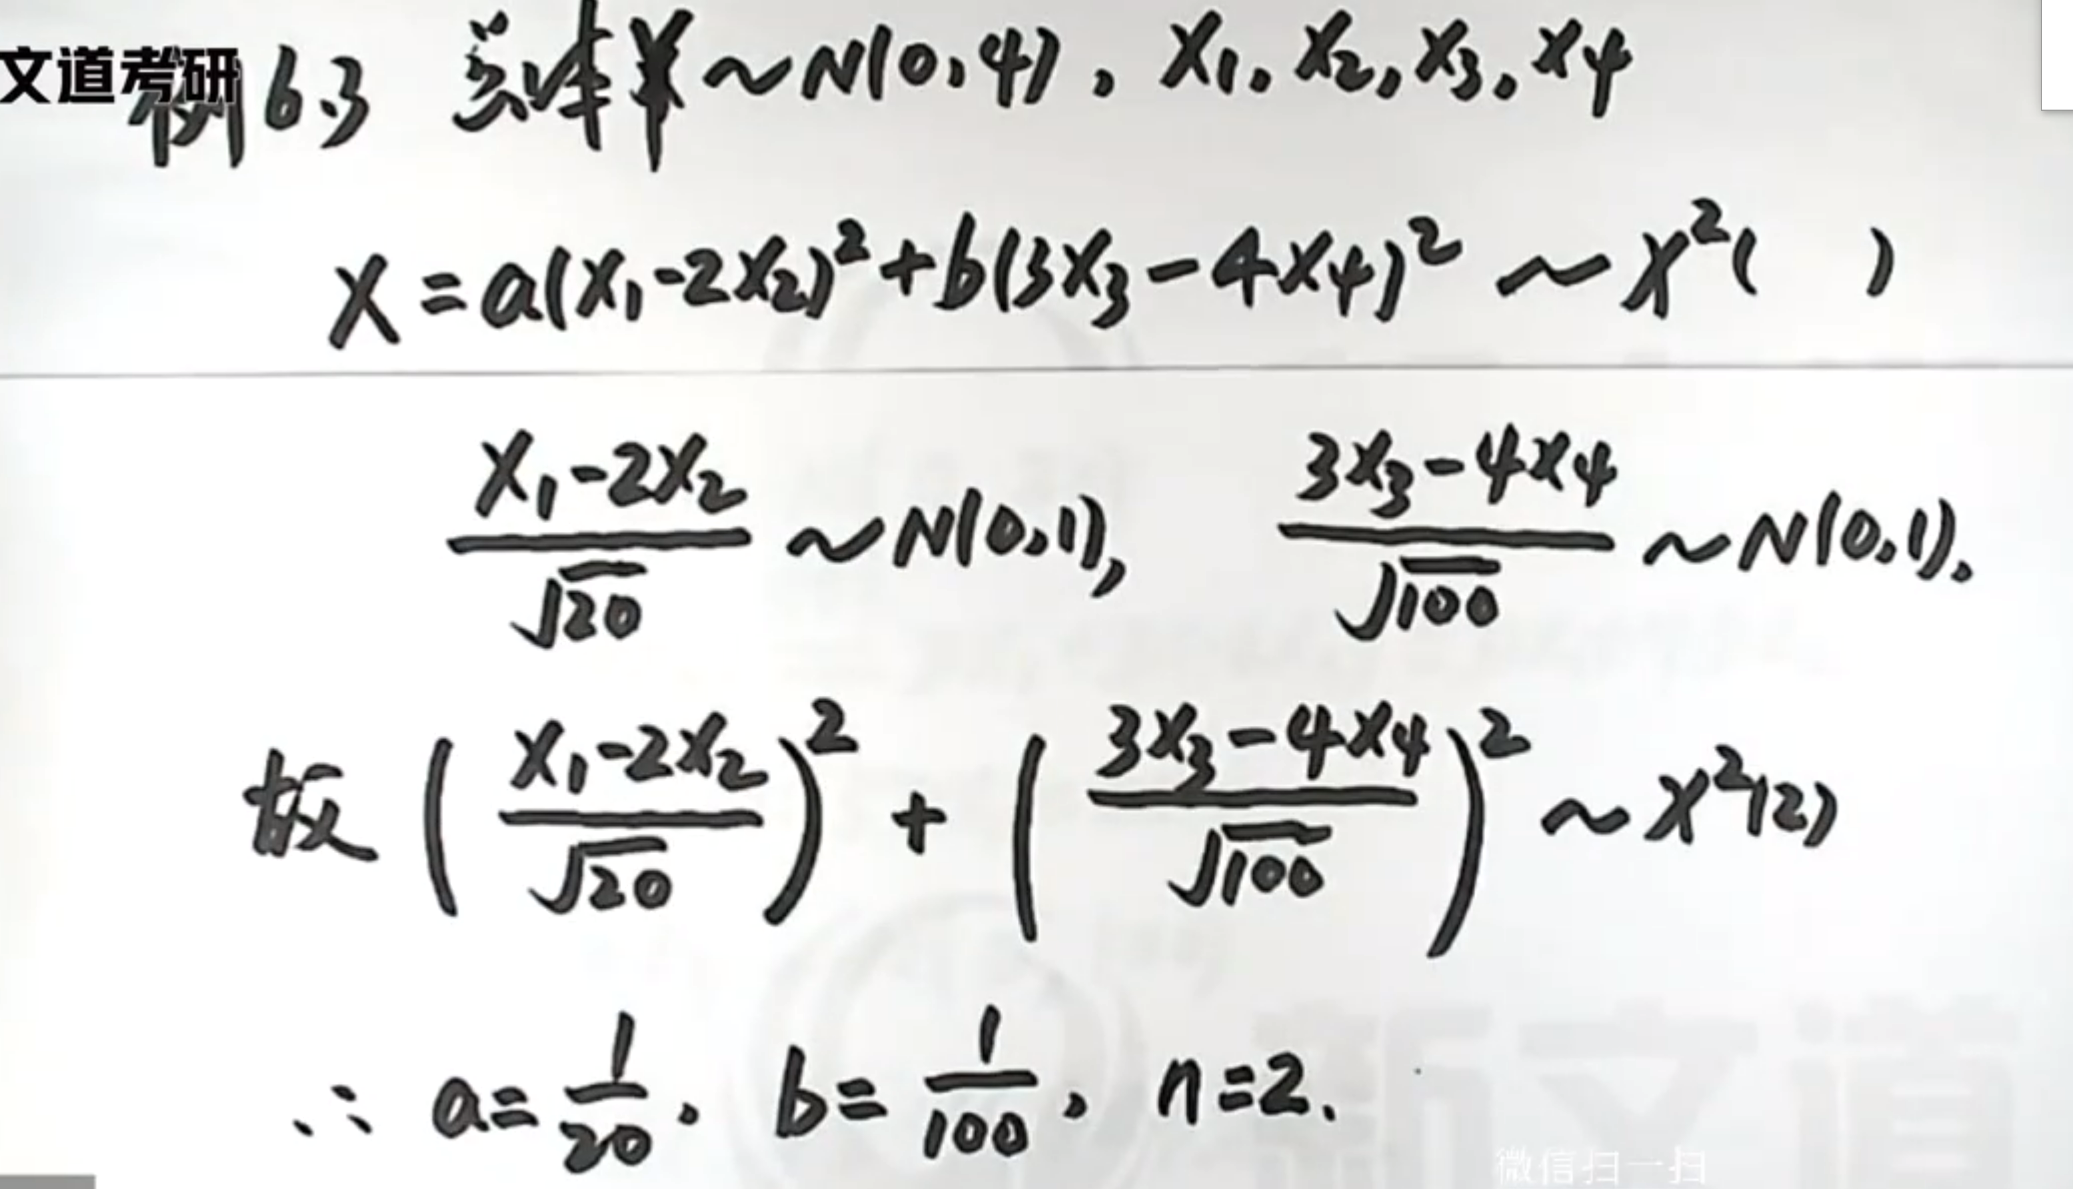 文道考研
例6.3 总体X~N(0,4), X₁, X₂, X₃, X₄
X=a(X₁-2X₂)²+b(3X₃-4X₄)² ~ X²( )
(X₁-2X₂)/√20 ~N(0,1), (3X₃-4X₄)/√100 ~N(0,1).
故 ((X₁-2X₂)/√20)² + ((3X₃-4X₄)/√100)² ~ X²(2)
∴ a=1/20, b=1/100, n=2.
新文道
微信扫一扫